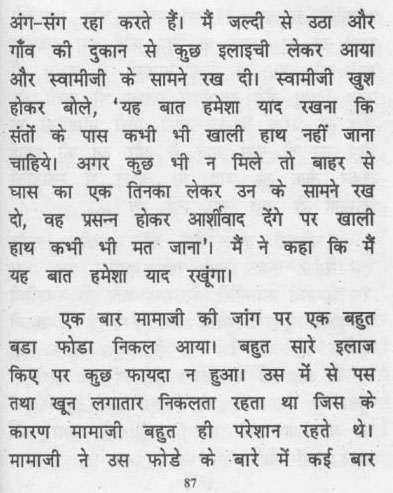 अंग-संग रहा करते हैं। मैं जल्दी से उठा और
गाँव की दुकान से कुछ इलाइची लेकर आया
और स्वामीजी के सामने रख दी। स्वामीजी खुश
होकर बोले, 'यह बात हमेशा याद रखना कि
संतों के पास कभी भी खाली हाथ नहीं जाना
चाहिये। अगर कुछ भी न मिले तो बाहर से
घास का एक तिनका लेकर उन के सामने रख
दो, वह प्रसन्न होकर आर्शीवाद देंगे पर खाली
हाथ कभी भी मत जाना'। मैं ने कहा कि मैं
यह बात हमेशा याद रखूंगा।
एक बार मामाजी की जांग पर एक बहुत
बडा फोडा निकल आया। बहुत सारे इलाज
किए पर कुछ फायदा न हुआ। उस में से पस
तथा खून लगातार निकलता रहता था जिस के
कारण मामाजी बहुत ही परेशान रहते थे।
मामाजी ने उस फोडे के बारे में कई बार
87